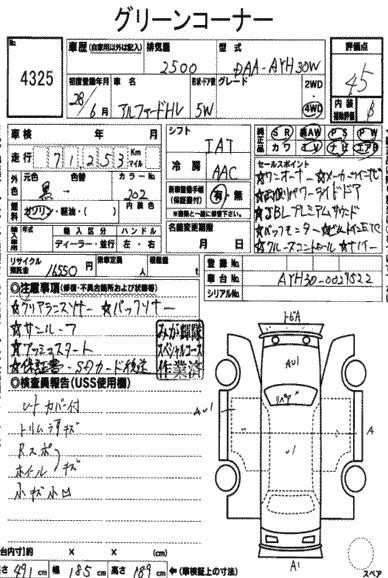 グリーンコーナー
No.
4325
車歴 (自家用以外は記入)
排気量
型式
評価点
2500
DAA-AYH30W
45
初度登録年月
車名
形状・ドア数
グレード
2WD
28/6月
アルファードHV
5W
4WD
内装
B
車検
年
月
シフト
IAT
純正品
SR
AW
PS
PW
カワ
TV
ナビ
エアB
走行
71253
Km
マイル
冷房
AAC
セールスポイント
外色
元色
色替
カラーNo.
☆ワンオーナー
黒→
202
有・無
☆両側パワースライドドア
燃料
ガソリン・軽油・( )
内装色
☆JBLプレミアムサウンド
輸入車
年式
輸入区分
ハンドル
名義変更期限
☆バックモニター
ディーラー・並行
左・右
月
日
☆クルーズコントロール
リサイクル預託金
16550円
乗車定員
人
積載量
t
登録No.
車台No.
AYH30-0027522
シリアルNo.
◎注意事項
☆クリアランスソナー
☆バックソナー
☆サンルーフ
☆プッシュスタート
☆保証書・SDカード後送
みがき隊
スペシャルコース
作業済
◎検査員報告(USS使用欄)
シートカバー付
トリム薄キズ
Rスポ
ホイールキズ
小キズ小凹
トビA
AU1
リペア
AU1
A
A
U1
A1
スペア
台内寸)約
×
×
(cm)
長さ 491 cm
幅 185 cm
高さ 189 cm
←(車検証上の寸法)